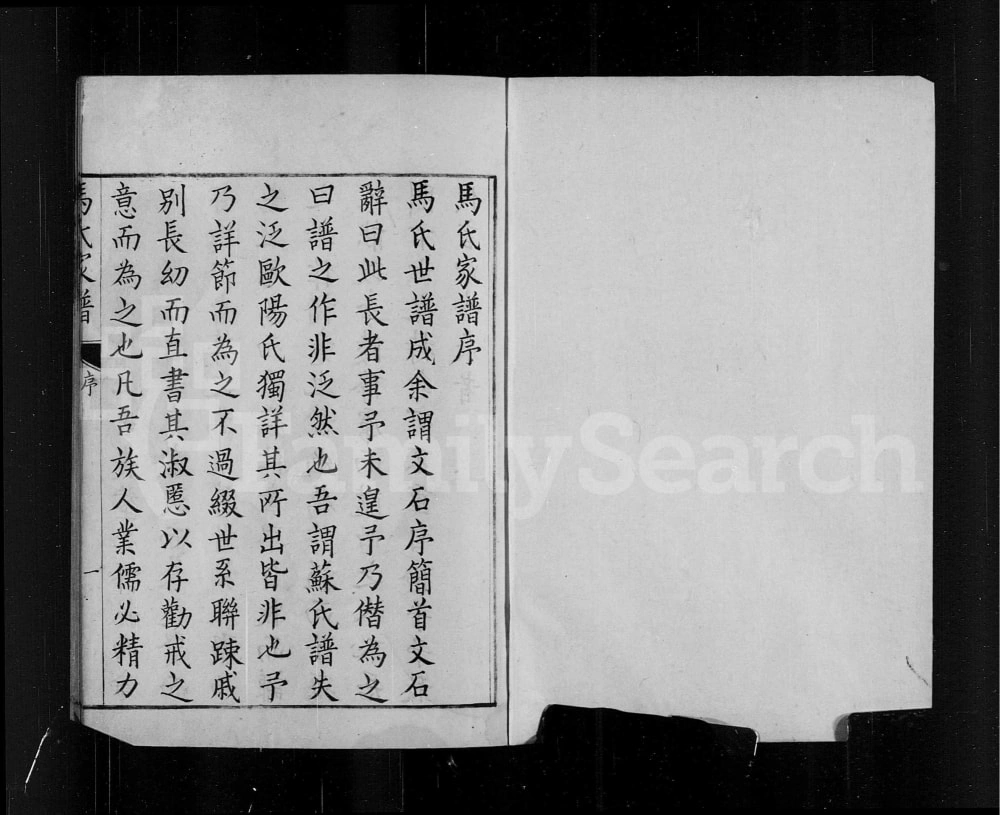 馬氏家譜序
馬氏世譜成余謂文石序簡首文石
辭曰此長者事予未遑予乃僣為之
曰譜之作非泛然也吾謂蘇氏譜失
之泛歐陽氏獨詳其所出皆非也予
乃詳節而為之不過綴世系聯踈戚
別長幼而直書其淑慝以存勸戒之
意而為之也凡吾族人業儒必精力
馬氏家譜
序
一
FamilySearch